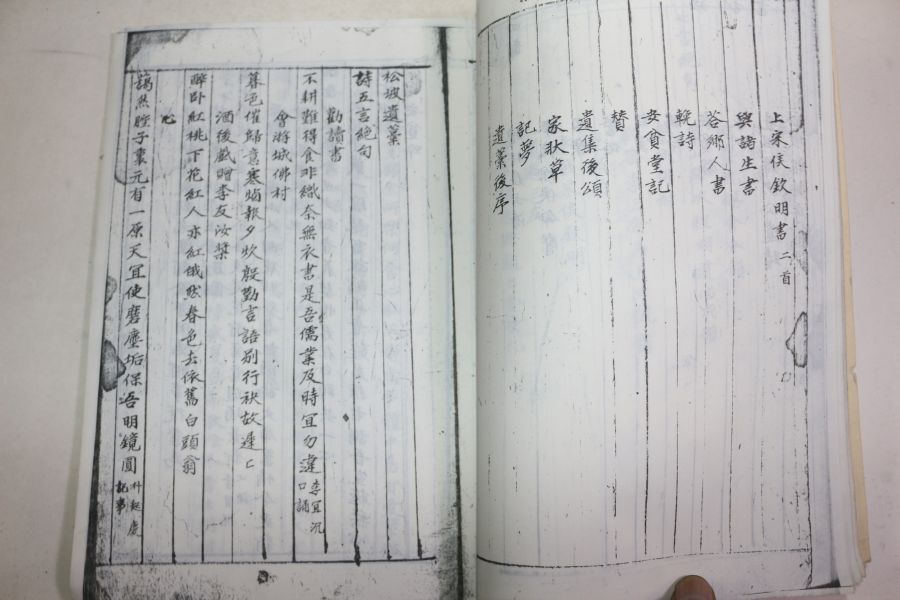 上宋侯欽明書 二首
與諸生書
答鄉人書
輓詩
安貧堂記
贊
遺集後頌
家狀草
記夢
遺藁後序
松坡遺藁
詩五言絶句
勸讀書
不耕難得食非織奈無衣書是吾儒業及時宜勿違 李宜沉口誦
會游城佛村
暮色催歸意寒烟報夕炊殷勤言語別行袂故遲〻
酒後戲贈李友汝
醉卧紅桃下花紅人亦紅俄然春色去依舊白頭翁
心
藹然腔子裏元有一原天宜使磨塵垢保吾明鏡圓 記事